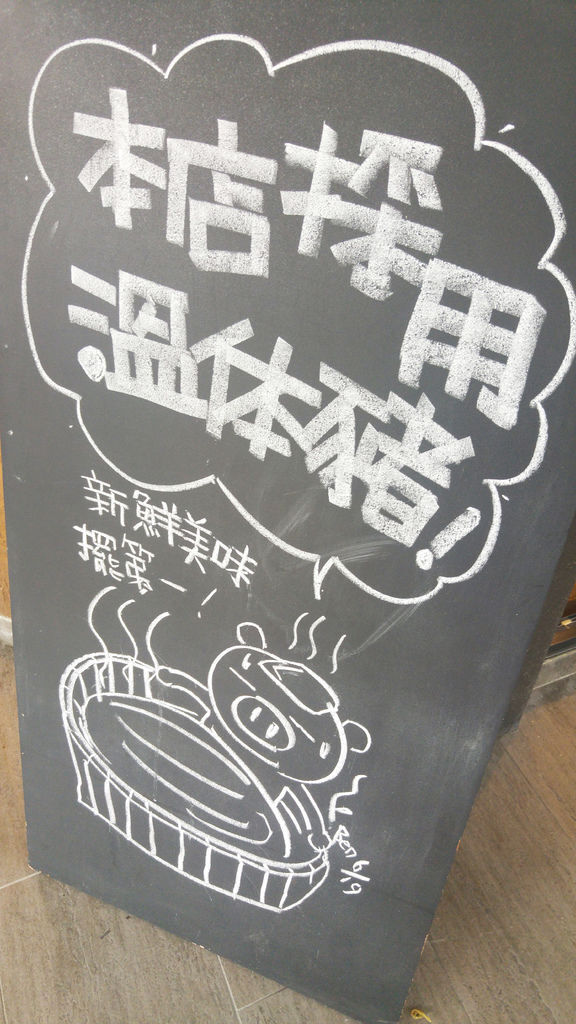 本店採用
溫体豬!
新鮮美味
擺第一!
Ren 6/9